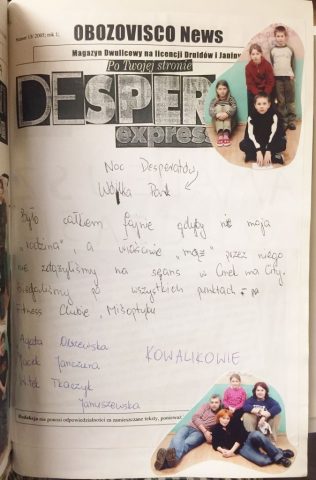 Numer 13/ 2005; rok 1;
OBOZOVISCO NeWS
Magazyn Dwulicowy na licencji Druidów i Janiny
Po Twojej stronie
DESPER
express
Noc Desperatów
Wójka Park
Było całkiem fajnie gdyby nie moja
"rodzina", a właściwie "mąż" przez niego
nie zdążyliśmy na seans w Cinek ma City.
Biegaliśmy po wszystkich punktach
Fitness Clubie, Misoptyku
Agata
Jacek Janczura
KOWALIKOWIE
Witek Tkaczyk
Januszewska
Redakcja nie ponosi odpowiedzialności za zamieszczane teksty, ponieważ